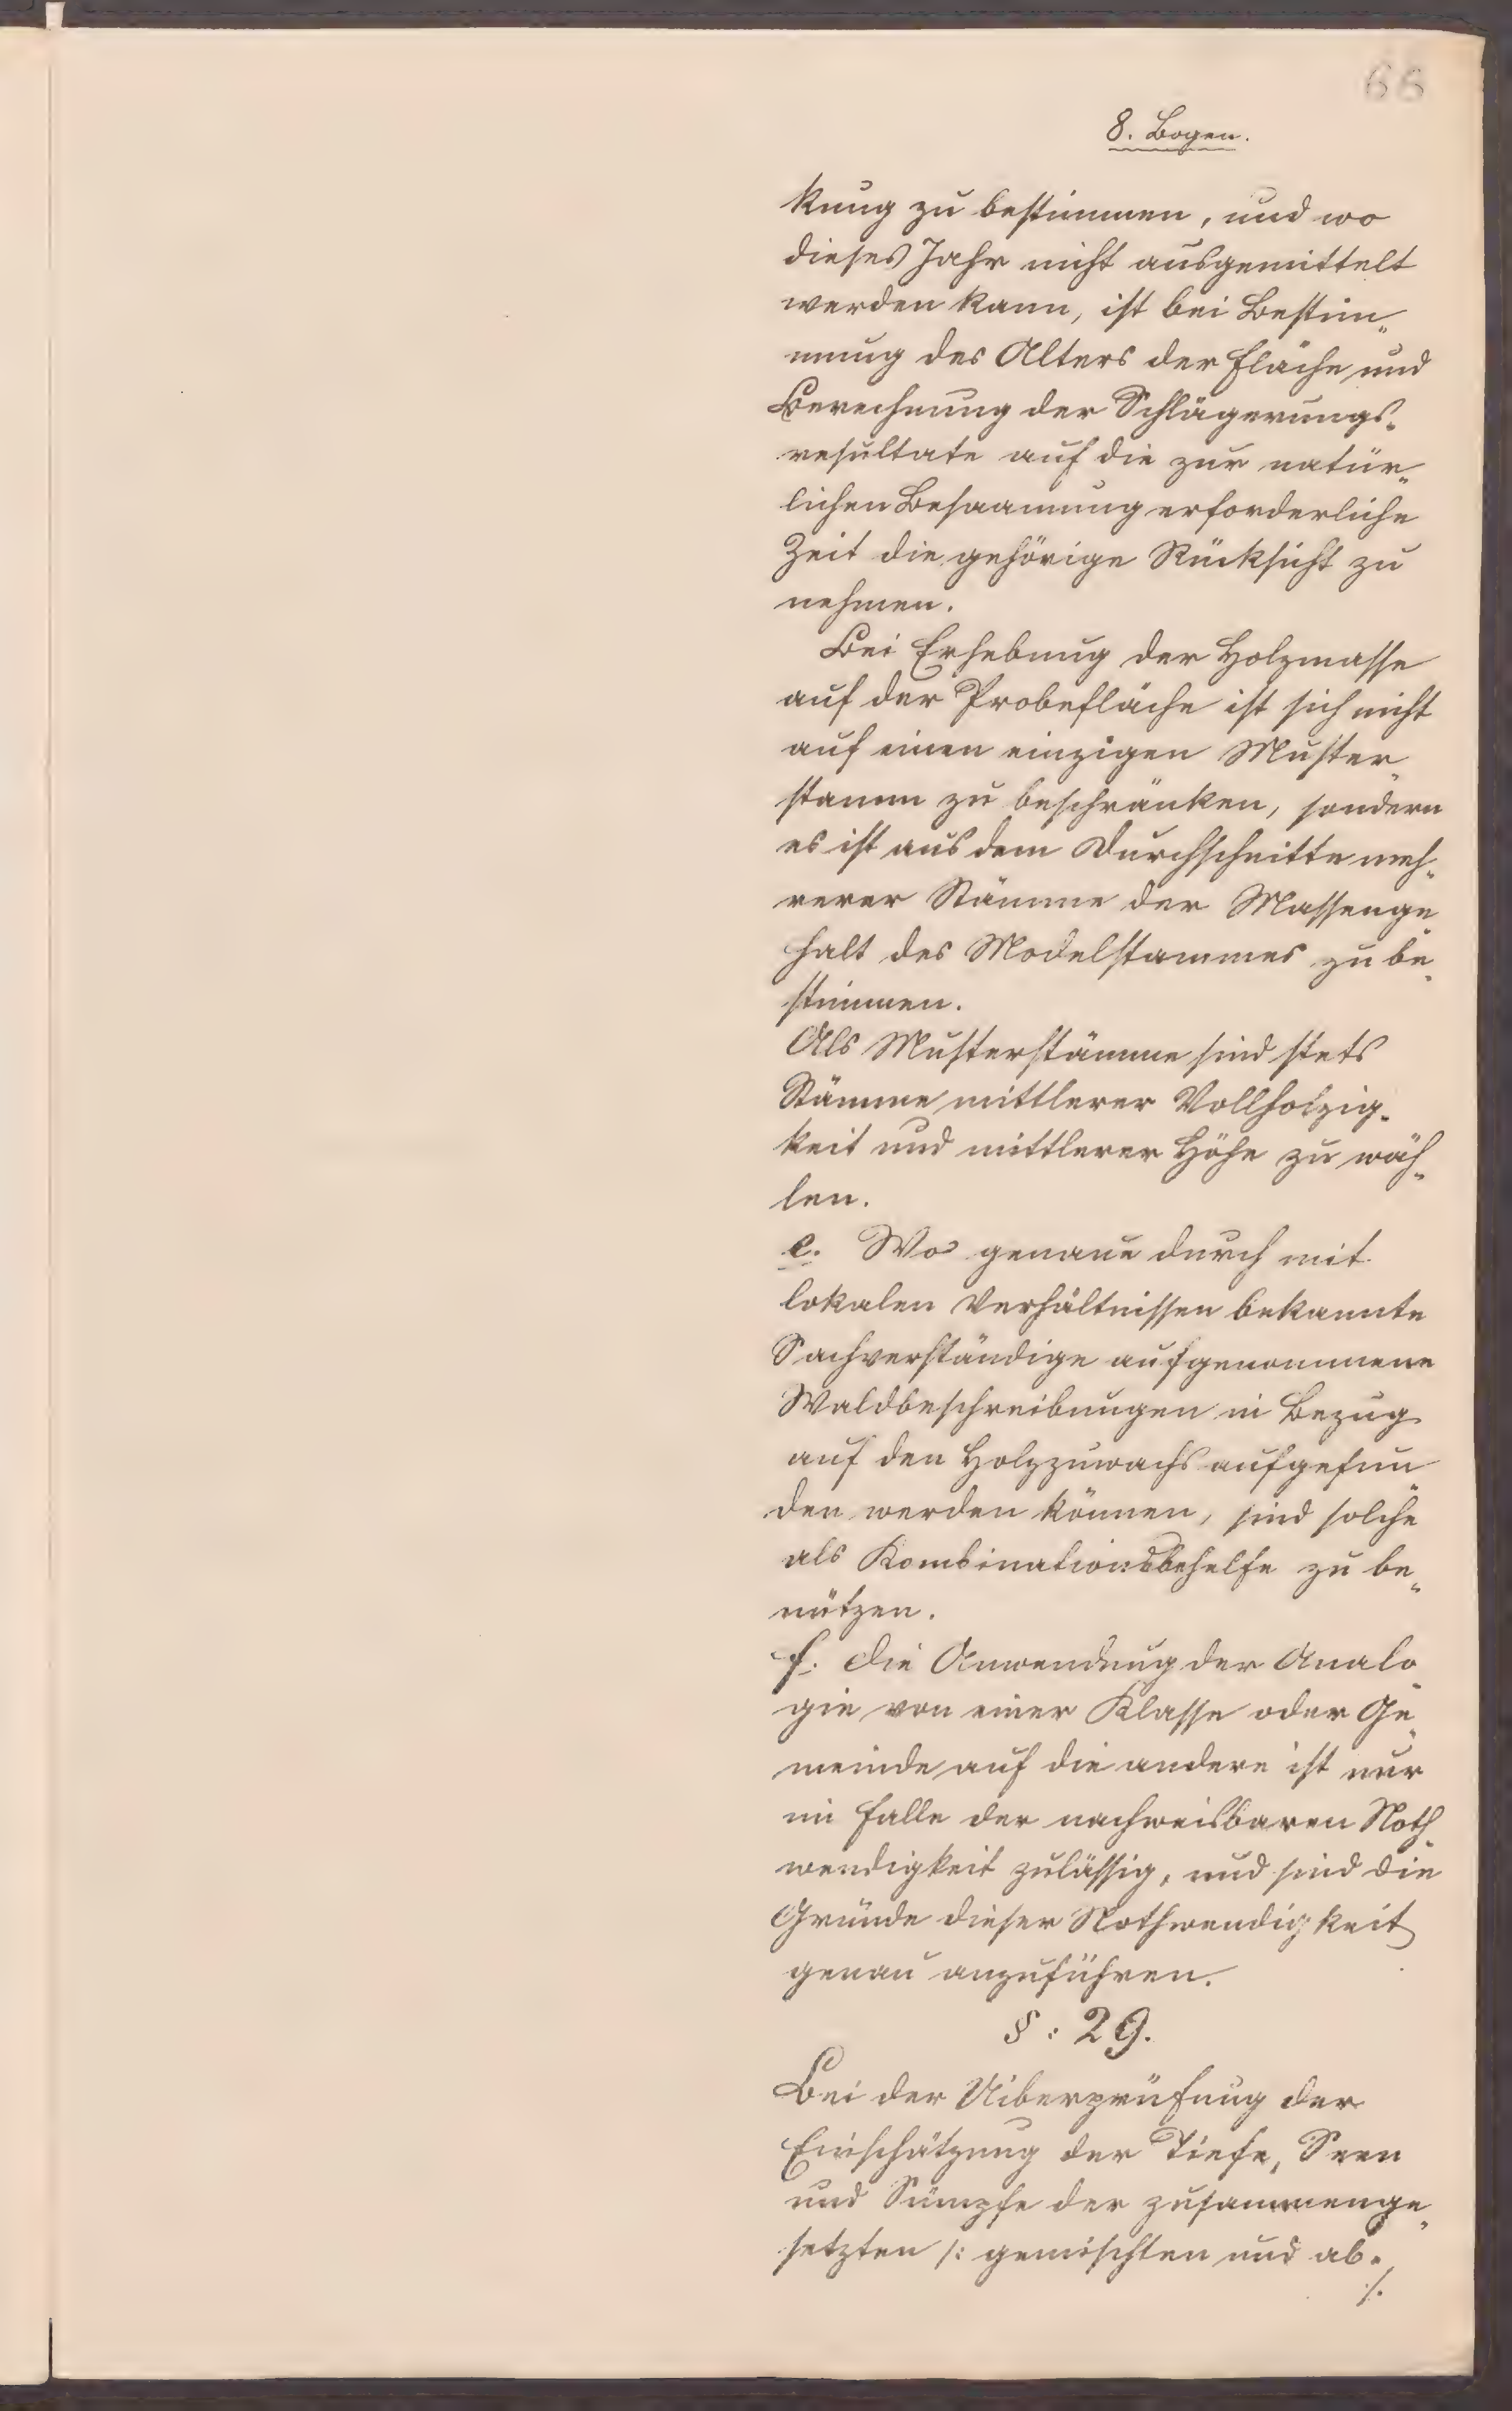 66
8. Bogen.
kung zu bestimmen, und wo
dieses Jahr nicht ausgemittelt
werden kann, ist bei Bestim„
mung des Alters der Fläche und
Berechnung der Schlägerungs„
resultate auf die zur natür„
lichen Besaamung erforderliche
Zeit die gehörige Rücksicht zu
nehmen.
Bei Erhebung der Holzmasse
auf der Probefläche ist sich nicht
auf einen einzigen Muster„
stamm zu beschränken, sondern
es ist aus dem Durchschnitte meh„
rerer Stämme der Massenge„
halt des Modelstammes zu be„
stimmen.
Als Musterstämme sind stets
Stämme mittlerer Vollholzig„
keit und mittlerer Höhe zu wäh„
len.
e. Wo genaue durch mit
lokalen Verhältnissen bekannte
Sachverständige aufgenommene
Waldbeschreibungen in Bezug
auf den Holzzuwachs aufgefun„
den werden können, sind solche
als Kombinationsbehelfe zu be„
nützen.
f. Die Anwendung der Analo„
gie von einer Klasse oder Ge„
meinde auf die andere ist nur
im Falle der nachweisbaren Noth„
wendigkeit zulässig, und sind die
Gründe dieser Nothwendigkeit
genau anzuführen.
§: 29.
Bei der Uiberprüfung der
Einschätzung der Tiefe, Seen
und Sümpfe der zusammenge„
setzten /: gemischten und ab„
./.